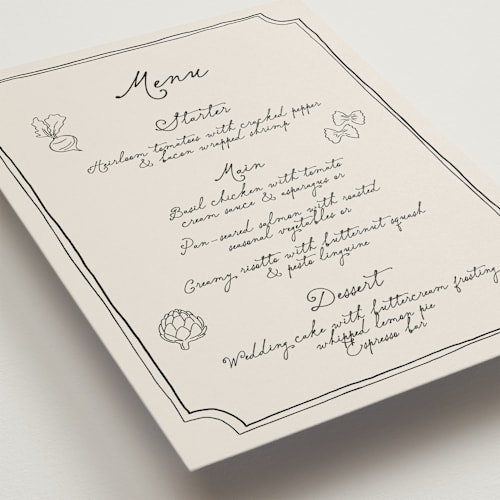 Menu
Starter
Heirloom tomatoes with cracked pepper
& bacon wrapped shrimp
Main
Basil chicken with tomato
cream sauce & asparagus or
Pan-seared salmon with roasted
seasonal vegetables or
Creamy risotto with butternut squash
& pesto linguine
Dessert
Wedding cake with buttercream frosting
whipped lemon pie
Espresso bar